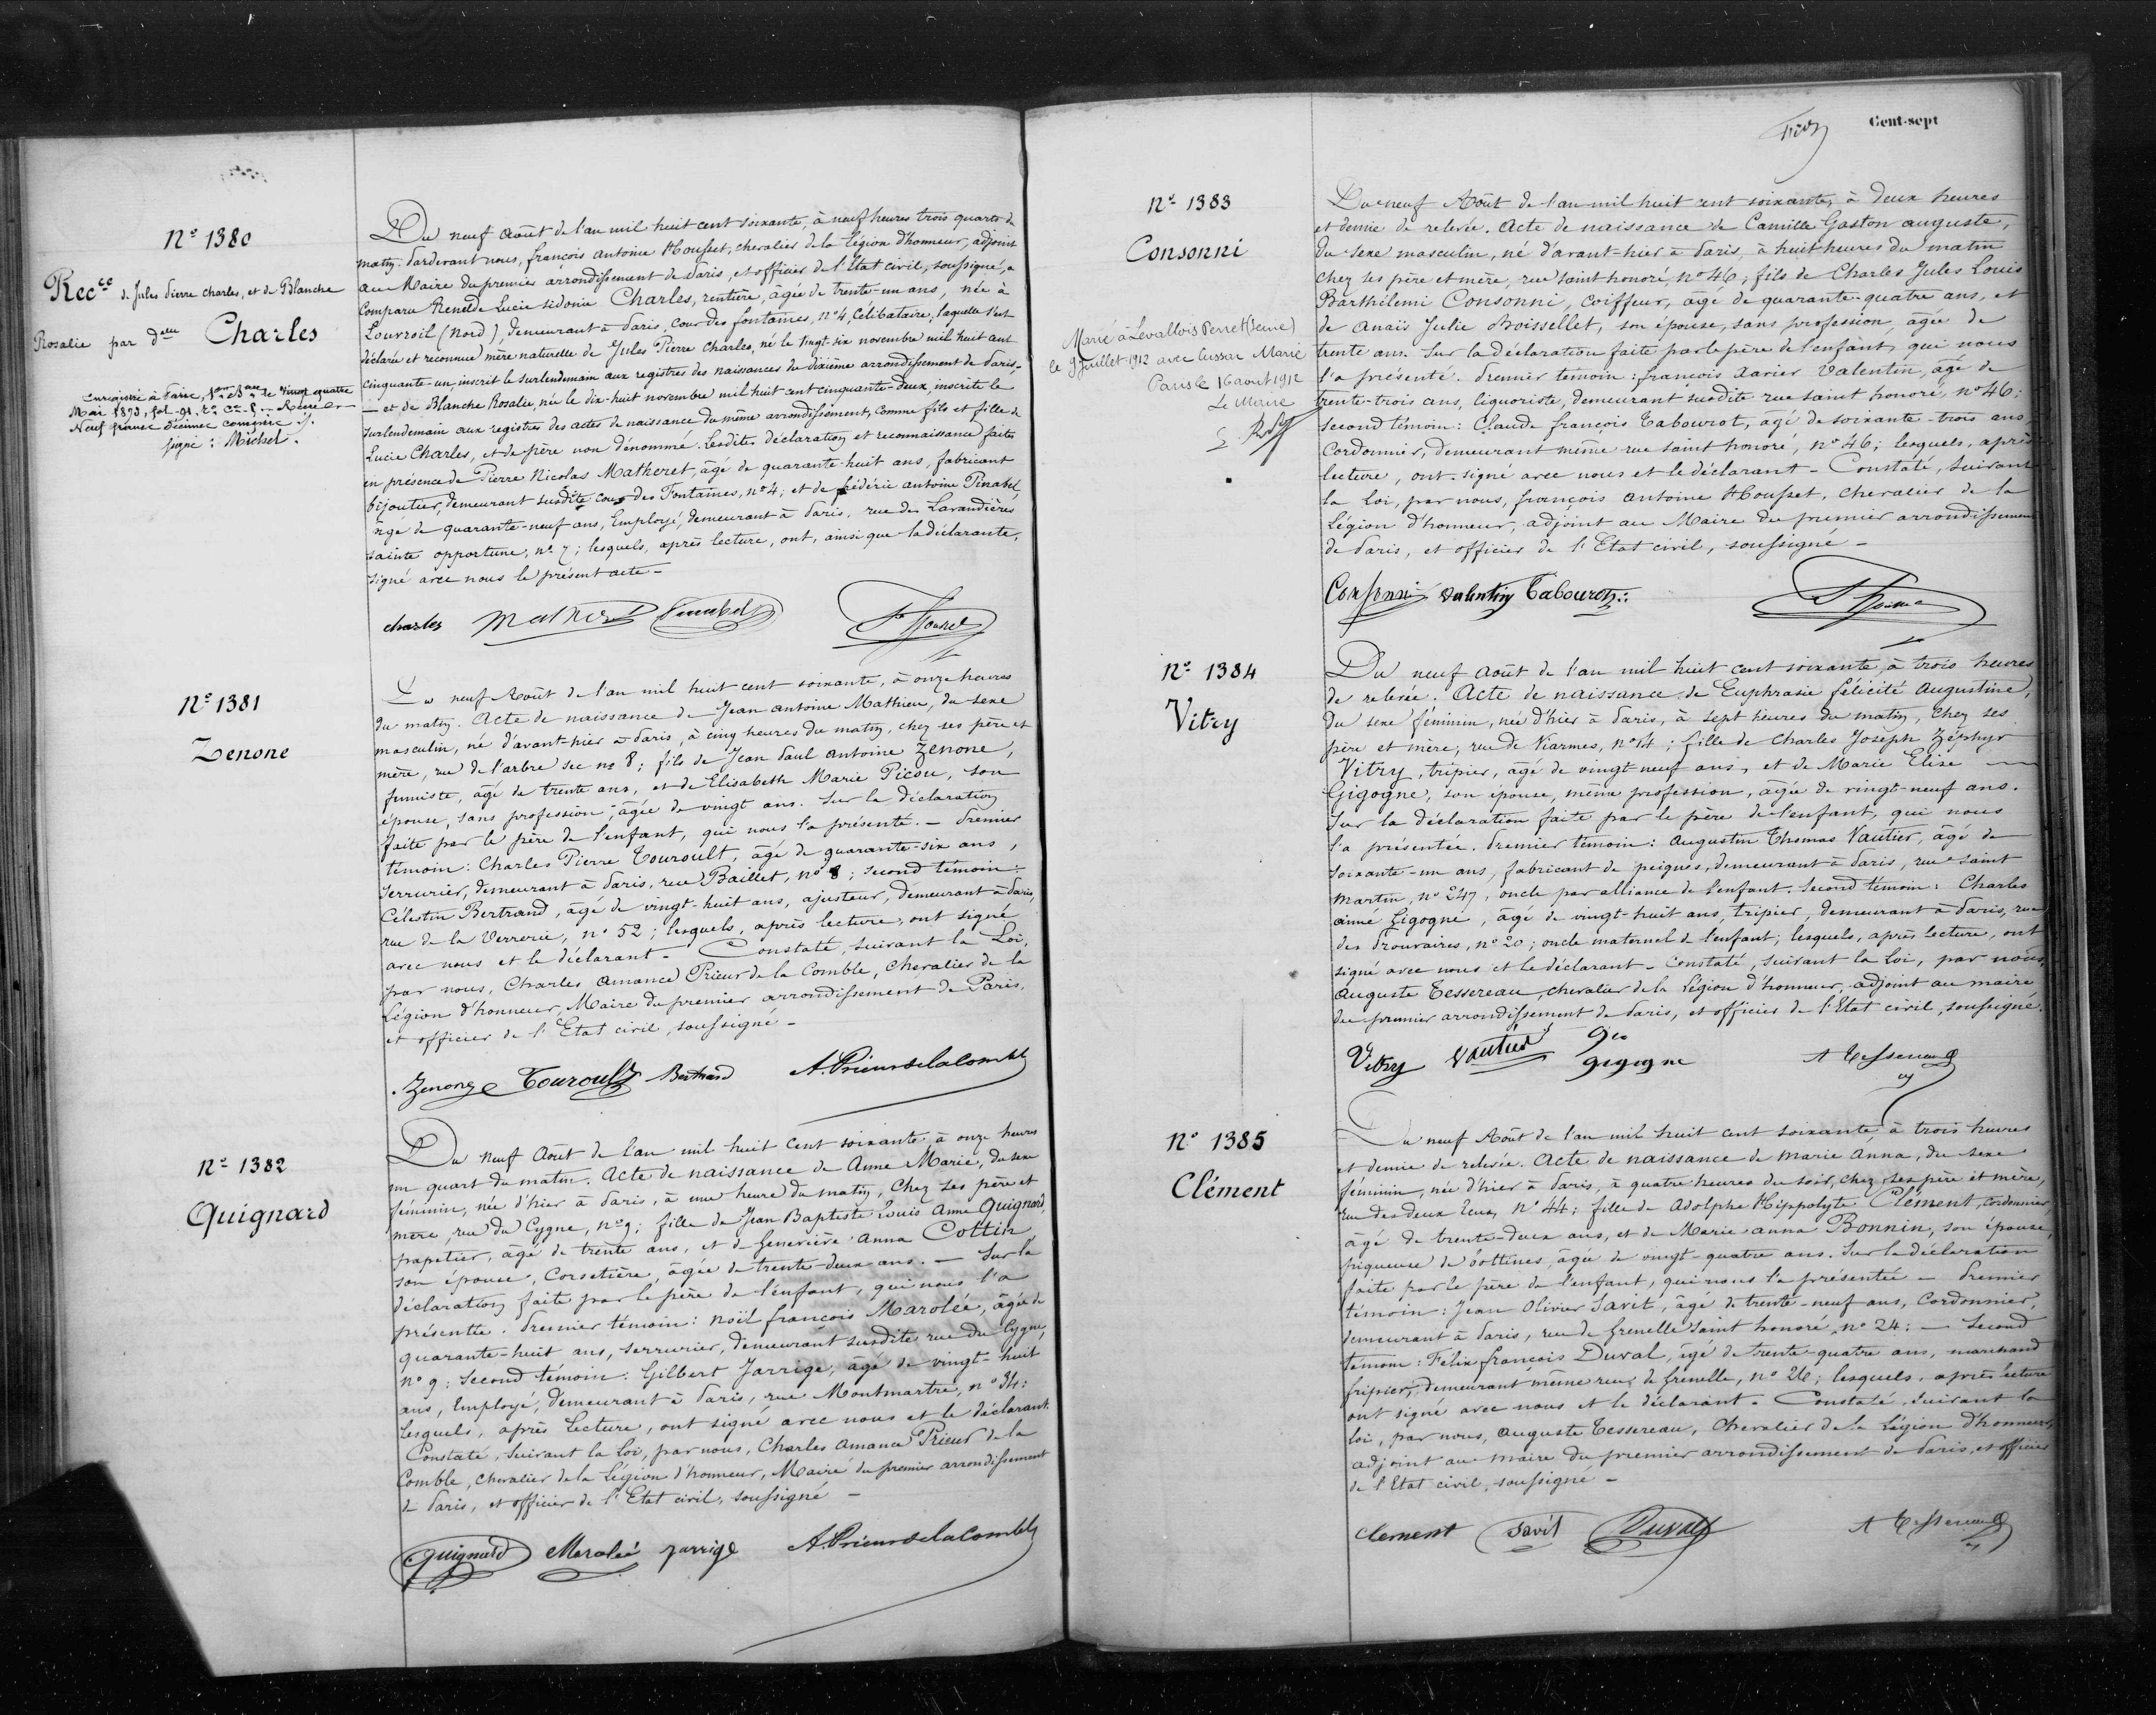 Nº 1380
Recce de Jules Pierre Charles, et de Blanche
Rosalie par delle Charles
Enregistré à Paris, le vingt quatre
Mai 1873, fol. 91,
Neuf francs
signé : Michel.
Du neuf Août de l'an mil huit cent soixante, à neuf heures trois quarts du
matin. Pardevant nous, françois antoine Housset, chevalier de la Légion d'honneur, adjoint
au Maire du premier arrondissement de Paris, et officier de l'Etat civil, soussigné, a
Comparu Renelde Lucie sidonie Charles, rentière, âgée de trente-un ans, née à
Louvroil (Nord), demeurant à Paris, Cour des fontaines, nº 4, Célibataire, laquelle s'est
déclarée et reconnue mère naturelle de Jules Pierre Charles, né le vingt six novembre mil huit cent
Cinquante-un, inscrit le surlendemain aux registres des naissances du dixième arrondissement de Paris -
- et de Blanche Rosalie, née le dix-huit novembre mil huit cent cinquante-deux, inscrite le
surlendemain aux registres des actes de naissance du même arrondissement, comme fils et fille de
Lucie Charles, et de père non dénommé. Lesdites déclaration et reconnaissance faites
en présence de Pierre Nicolas Matheret, âgé de quarante-huit ans, fabricant
bijoutier, demeurant susdite cour des Fontaines, nº 4; et de frédéric antoine Pinabel,
âgé de quarante-neuf ans, Employé, demeurant à Paris, rue des Lavandières
sainte opportune, nº 7; lesquels, après lecture, ont, ainsi que la déclarante,
signé avec nous le présent acte -
charles Matheret Pinabel Housset
Nº 1381
Zenone
Du neuf Août de l'an mil huit cent soixante, à onze heures
du matin. Acte de naissance de Jean antoine Mathieu, du sexe
masculin, né d'avant-hier à Paris, à cinq heures du matin, chez ses père et
mère, rue de l'arbre sec nº 8; fils de Jean Paul antoine Zenone,
fumiste, âgé de trente ans, et de Elisabeth Marie Picou, son
épouse, sans profession, âgée de vingt ans. Sur la déclaration
faite par le père de l'enfant, qui nous l'a présenté. - Premier
témoin : Charles Pierre Touroult, âgé de quarante-six ans,
serrurier, demeurant à Paris, rue Baillet, nº 8; second témoin :
Célestin Bertrand, âgé de vingt-huit ans, ajusteur, demeurant à Paris,
rue de la Verrerie, nº 52; lesquels, après lecture, ont signé
avec nous et le déclarant - Constaté, suivant la Loi,
par nous, Charles Amance Prieur de la Comble, Chevalier de la
Légion d'honneur, Maire du premier arrondissement de Paris,
et officier de l'Etat civil, soussigné -
Zenone Touroult Bertrand A. Prieur de la Comble
Nº 1382
Quignard
Du neuf Août de l'an mil huit cent soixante à onze heures
un quart du matin. Acte de naissance de Anne Marie, du sexe
féminin, née d'hier à Paris, à une heure du matin, chez ses père et
mère, rue du Cygne, nº 9; fille de Jean Baptiste Louis Anne Quignard,
papetier, âgé de trente ans, et de Geneviève Anna Cottin
son épouse, Corsetière, âgée de trente-deux ans. - Sur la
déclaration faite par le père de l'enfant, qui nous l'a
présentée. Premier témoin : Noël françois Marolée, âgé de
quarante-huit ans, serrurier, demeurant susdite rue du Cygne,
nº 9; second témoin : Gilbert Jarrige, âgé de vingt-huit
ans, Employé, demeurant à Paris, rue Montmartre, nº 34:
Lesquels, après Lecture, ont signé avec nous et le déclarant.
Constaté, suivant la Loi, par nous, Charles amance Prieur de la
Comble, chevalier de la Légion d'honneur, Maire du premier arrondissement
de Paris, et officier de l'Etat civil, soussigné -
Quignard Marolée Jarrige A. Prieur de la Comble
Cent-sept
Nº 1383
Consonni
Marié à Levallois Perret (Seine)
le 9 juillet 1912 avec Cussar Marie
Paris le 16 aout 1912
Le Maire
Du neuf Août de l'an mil huit cent soixante, à deux heures
et demie de relevée. Acte de naissance de Camille Gaston auguste,
du sexe masculin, né d'avant-hier à Paris, à huit heures du matin
chez ses père et mère, rue saint honoré, nº 46; fils de Charles Jules Louis
Barthélemi Consonni, coiffeur, âgé de quarante-quatre ans, et
de Anaïs Julie Boissellet, son épouse, sans profession, âgée de
trente ans. Sur la déclaration faite par le père de l'enfant, qui nous
l'a présenté. Premier témoin : françois Xavier Valentin, âgé de
trente-trois ans, liquoriste, demeurant susdite rue saint honoré, nº 46;
second témoin : Claude françois Tabourot, âgé de soixante-trois ans
Cordonnier, demeurant même rue saint honoré, nº 46; lesquels, après
lecture, ont signé avec nous et le déclarant - Constaté, suivant
la Loi, par nous, françois antoine Housset, chevalier de la
Légion d'honneur, adjoint au Maire du premier arrondissement
de Paris, et officier de l'Etat civil, soussigné -
Consonni Valentin Tabourot Housset
Nº 1384
Vitry
Du neuf Août de l'an mil huit cent soixante, à trois heures
de relevée. Acte de naissance de Euphrasie félicité Augustine,
du sexe féminin, née d'hier à Paris, à sept heures du matin, chez ses
père et mère, rue de Viarmes, nº 14; fille de Charles Joseph Zéphyr
Vitry, tripier, âgé de vingt-neuf ans, et de Marie Elise
Gigogne, son épouse, même profession, âgée de vingt-neuf ans.
Sur la déclaration faite par le père de l'enfant, qui nous
l'a présentée. Premier témoin : Augustin Thomas Vautier, âgé de
soixante-un ans, fabricant de peignes, demeurant à Paris, rue Saint
Martin, nº 247, oncle par alliance de l'enfant. Second témoin : Charles
aimé Gigogne, âgé de vingt-huit ans, tripier, demeurant à Paris, rue
des Prouvaires, nº 20; oncle maternel de l'enfant; lesquels, après lecture, ont
signé avec nous et le déclarant - Constaté, suivant la Loi, par nous,
Auguste Tessereau, chevalier de la Légion d'honneur, adjoint au maire
du premier arrondissement de Paris, et officier de l'Etat civil, soussigné.
Vitry Vautier gigogne A Tessereau
Nº 1385
Clément
Du neuf Août de l'an mil huit cent soixante, à trois heures
et demie de relevée. Acte de naissance de Marie Anna, du sexe
féminin, née d'hier à Paris, à quatre heures du soir, chez ses père et mère,
rue des deux Ecus, Nº 44; fille de Adolphe Hippolyte Clément, Cordonnier,
âgé de trente-deux ans, et de Marie anna Bonnin, son épouse,
piqueuse de bottines, âgée de vingt-quatre ans. Sur la déclaration
faite par le père de l'enfant, qui nous l'a présentée - Premier
témoin : Jean Olivier Savit, âgé de trente-neuf ans, Cordonnier,
demeurant à Paris, rue de Grenelle Saint honoré, nº 24; - Second
témoin : Félix françois Duval, âgé de trente-quatre ans, marchand
fripier, demeurant même rue de Grenelle, nº 26; lesquels, après lecture
ont signé avec nous et le déclarant - Constaté, suivant la
loi, par nous, Auguste Tessereau, Chevalier de la Légion d'honneur,
adjoint au maire du premier arrondissement de Paris, et officier
de l'Etat civil, soussigné -
Clement Savit Duval A Tessereau